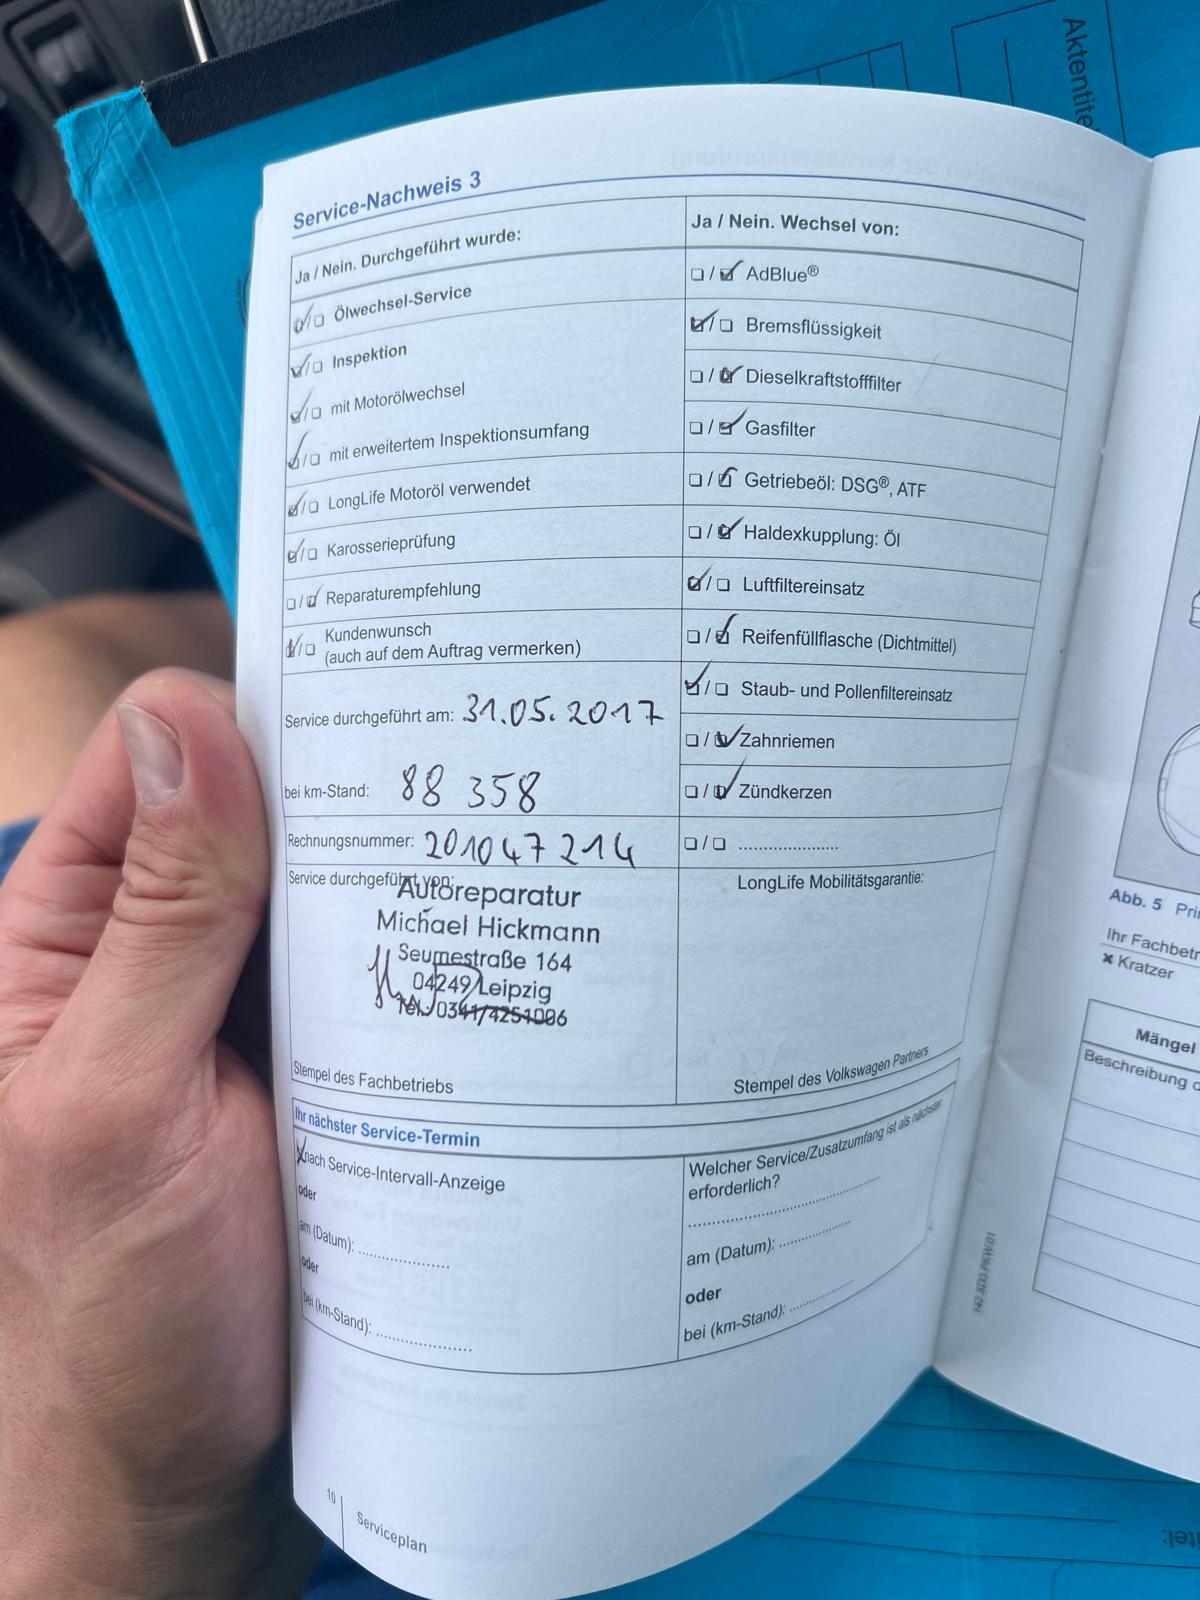 Aktentite
Service-Nachweis 3
Ja / Nein. Durchgeführt wurde:
☑/☐ Ölwechsel-Service
☑/☐ Inspektion
☑/☐ mit Motorölwechsel
☑/☐ mit erweitertem Inspektionsumfang
☑/☐ LongLife Motoröl verwendet
☑/☐ Karosserieprüfung
☐/☑ Reparaturempfehlung
☑/☐ Kundenwunsch
(auch auf dem Auftrag vermerken)
Service durchgeführt am: 31.05.2017
bei km-Stand: 88 358
Rechnungsnummer: 201047214
Service durchgeführt von:
Autoreparatur
Michael Hickmann
Seumestraße 164
04249 Leipzig
Tel. 0341/4251006
Stempel des Fachbetriebs
Ja / Nein. Wechsel von:
☐/☑ AdBlue®
☑/☐ Bremsflüssigkeit
☐/☑ Dieselkraftstofffilter
☐/☑ Gasfilter
☐/☑ Getriebeöl: DSG®, ATF
☐/☑ Haldexkupplung: Öl
☑/☐ Luftfiltereinsatz
☐/☑ Reifenfüllflasche (Dichtmittel)
☑/☐ Staub- und Pollenfiltereinsatz
☐/☑ Zahnriemen
☐/☑ Zündkerzen
☐/☐ ....................
LongLife Mobilitätsgarantie:
Stempel des Volkswagen Partners
Ihr nächster Service-Termin
☒ nach Service-Intervall-Anzeige
oder
am (Datum): ..................
oder
bei (km-Stand): ...................
Welcher Service/Zusatzumfang ist als nächster
erforderlich?
.....................................
am (Datum): ..............
oder
bei (km-Stand): .............
10
Serviceplan
142.5D3.PKW.01
Abb. 5 Pri
Ihr Fachbetr
✖ Kratzer
Mängel
Beschreibung d